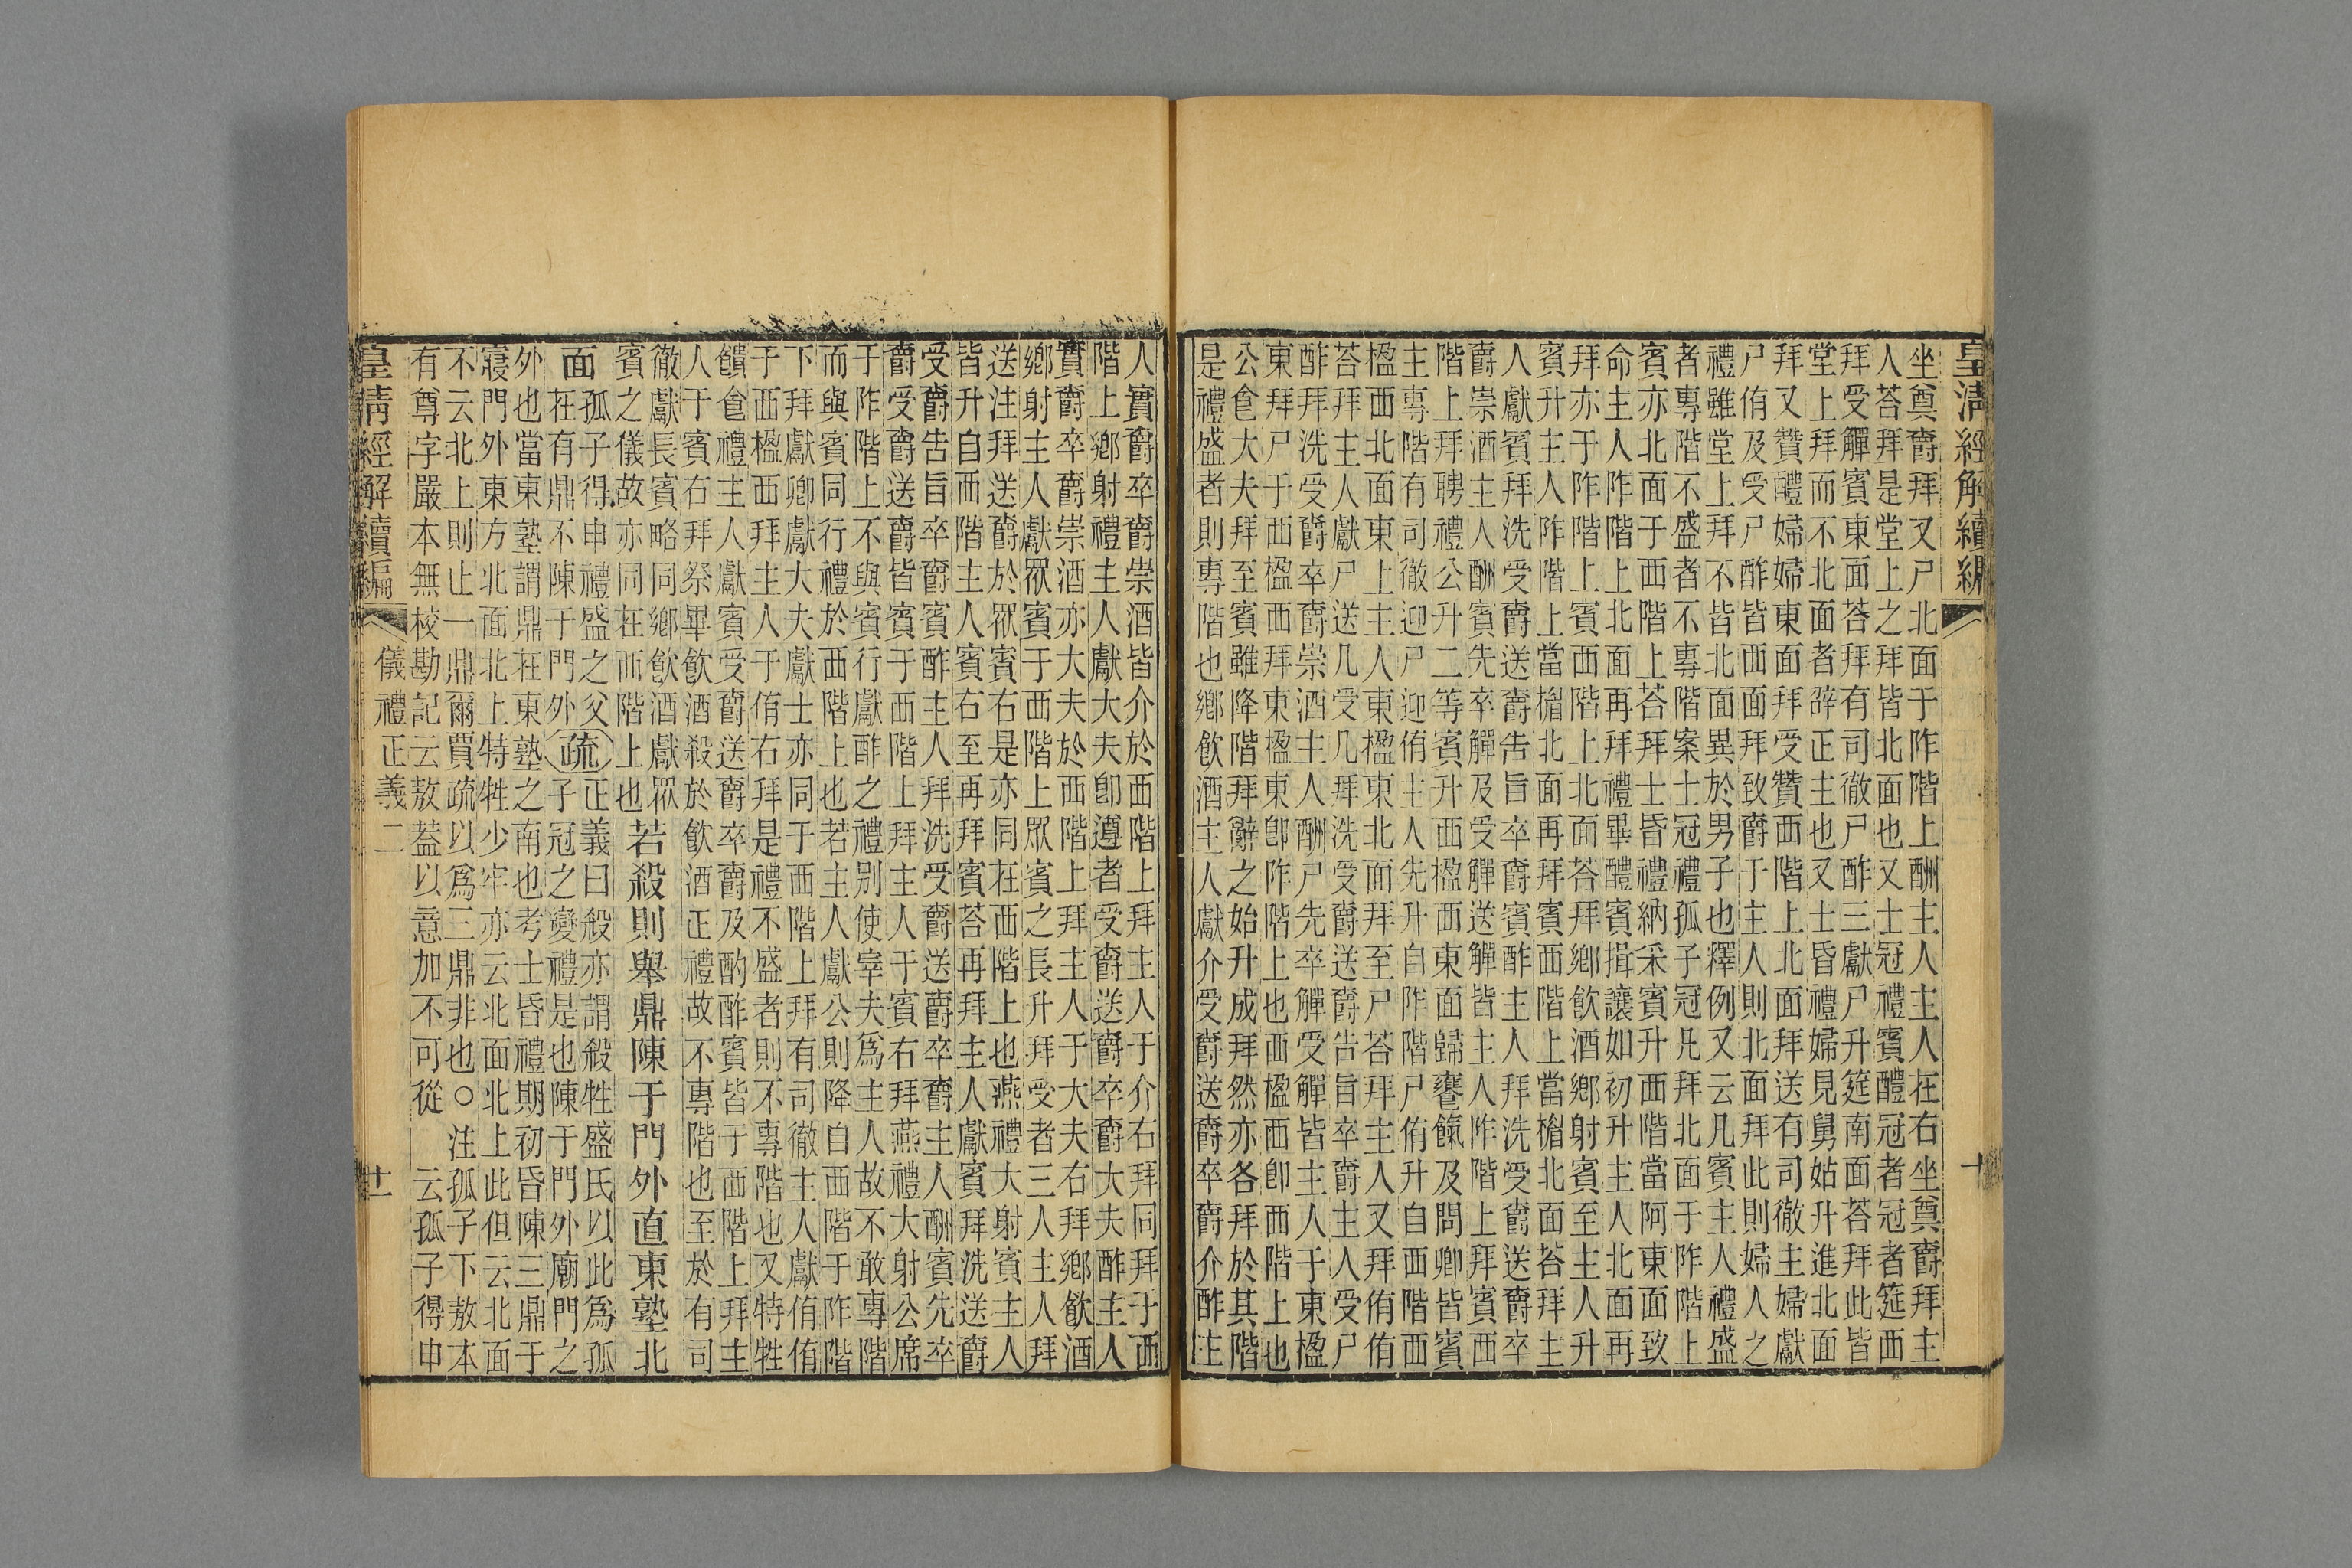 皇清經解續編
十
坐奠爵拜又尸北面于阼階上酬主人主人在右坐奠爵拜主
人荅拜是堂上之拜皆北面也又士冠禮賓醴冠者冠者筵西
拜受觶賓東面荅拜有司徹尸酢三獻尸升筵南面荅拜此皆
堂上拜而不北面者辭正主也又士昏禮婦見舅姑升進北面
拜又贊醴婦婦東面拜受贊西階上北面拜送有司徹主婦獻
尸侑及受尸酢皆西面拜致爵于主人則北面拜此則婦人之
禮雖堂上拜不皆北面異於男子也釋例又云凡賓主人禮盛
者專階不盛者不專階案士冠禮孤子冠凡拜北面于阼階上
賓亦北面于西階上荅拜士昏禮納采賓升西階當阿東面致
命主人阼階上北面再拜禮畢醴賓揖讓如初升主人北面再
拜亦于阼階上賓西階上北面荅拜鄉飲酒鄉射賓至主人升
賓升主人阼階上當楣北面再拜賓西階上當楣北面荅拜主
人獻賓拜洗受爵送爵告旨卒爵賓酢主人拜洗受爵送爵卒
爵崇酒主人酬賓先卒觶及受觶送觶皆主人阼階上拜賓西
階上拜聘禮公升二等賓升西楹西東面歸饔餼及問卿皆賓
主專階有司徹迎尸迎侑主人先升自阼階尸侑升自西階西
楹西北面東上主人東楹東北面拜至尸荅拜主人又拜侑侑
荅拜主人獻尸送几受几拜洗受爵送爵告旨卒爵主人受尸
酢拜洗受爵卒爵崇酒主人酬尸先卒觶受觶皆主人于東楹
東拜尸于西楹西拜東楹東卽阼階上也西楹西卽西階上也
公食大夫拜至賓雖降階拜辭之始升成拜然亦各拜於其階
是禮盛者則專階也鄉飲酒主人獻介受爵送爵卒爵介酢主
人實爵卒爵崇酒皆介於西階上拜主人于介右拜同拜于西
階上鄉射禮主人獻大夫卽遵者受爵送爵卒爵大夫酢主人
實爵卒爵崇酒亦大夫於西階上拜主人于大夫右拜鄉飲酒
鄉射主人獻眾賓于西階上眾賓之長升拜受者三人主人拜
送注拜送爵於眾賓右是亦同在西階上也燕禮大射賓主人
皆升自西階主人賓右至再拜賓荅再拜主人獻賓拜洗送爵
受爵告旨卒爵賓酢主人拜洗受爵送爵卒爵主人酬賓先卒
爵受爵送爵皆賓于西階上拜主人于賓右拜燕禮大射公席
于阼階上不與賓行獻酢之禮別使宰夫爲主人故不敢專階
而與賓同行禮於西階上也若主人獻公則降自西階于阼階
下拜獻卿獻大夫獻士亦同于西階上拜有司徹主人獻侑侑
于西楹西拜主人于侑右拜是禮不盛者則不專階也又特牲
饋食禮主人獻賓受爵送爵卒爵及酌酢賓皆于西階上拜主
人于賓右拜祭畢飲酒殺於飲酒正禮故不專階也至於有司
徹獻長賓略同鄉飲酒獻眾
賓之儀故亦同在西階上也
若殺則舉鼎陳于門外直東塾北
面
孤子得申禮盛之父
在有鼎不陳于門外
疏
正義曰殺亦謂殺牲盛氏以此爲孤
子冠之變禮是也陳于門外廟門之
外也當東塾謂鼎在東塾之南也考士昏禮期初昏陳三鼎于
寢門外東方北面北上特牲少牢亦云北面北上此但云北面
不云北上則止一鼎爾賈疏以爲三鼎非也○注孤子下敖本
有尊字嚴本無校勘記云敖葢以意加不可從　云孤子得申
皇清經解續編
儀禮正義二
十一